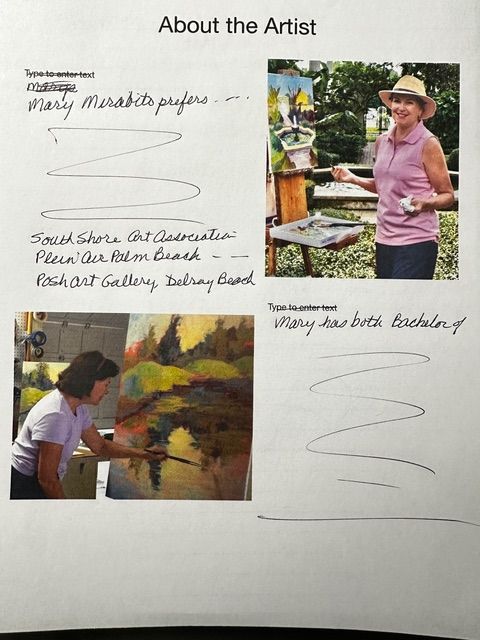 About the Artist
Type to enter text
Mary Mirabito prefers - - -
South Shore Art Association
Plein Air Palm Beach - -
Posh Art Gallery Delray Beach
Type to enter text
Mary has both Bachelor of